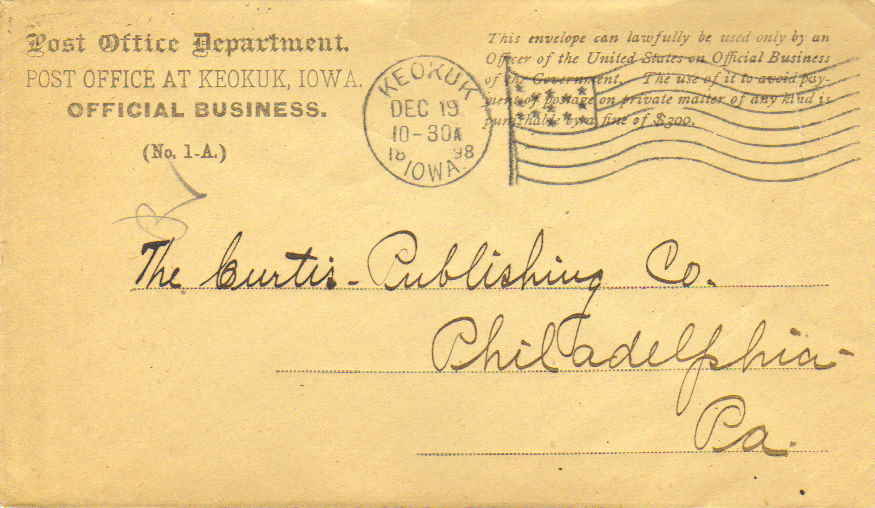 Post Office Department.
POST OFFICE AT KEOKUK, IOWA.
OFFICIAL BUSINESS.
(No. 1-A.)
This envelope can lawfully be used only by an
Officer of the United States on Official Business
of the Government. The use of it to avoid pay-
ment of postage on private matter of any kind is
punishable by a fine of $300.
KEOKUK
DEC 19
10-30A
18 98
IOWA.
The Curtis-Publishing Co.
Philadelphia-
Pa.